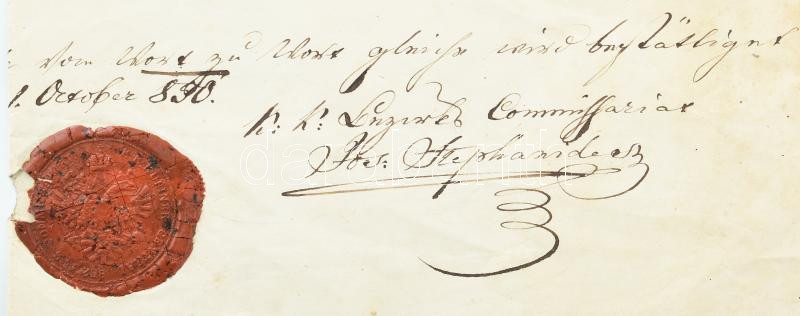 vom Wort zu Wort gleich wird bestättiget
October 850.
K: K: Bezirks Commissariat
Jos: Stephanides